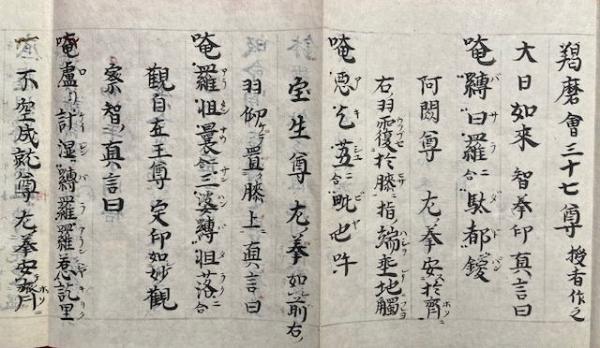 羯磨會三十七尊 授者作之
大日如来 智拳印真言曰
唵縛日羅二合駄都鑁
阿閦尊 左拳安於齊
右羽覆於膝指端垂地觸
唵悪乞蒭二合毗也吽
宝生尊 左拳如前右
羽仰置膝上真言曰
唵羅怛曩二合三婆縛怛落二合
觀自在王尊 定印如妙觀
察智真言曰
唵盧計湿縛羅羅惹訖里
不空成就尊左拳安齊